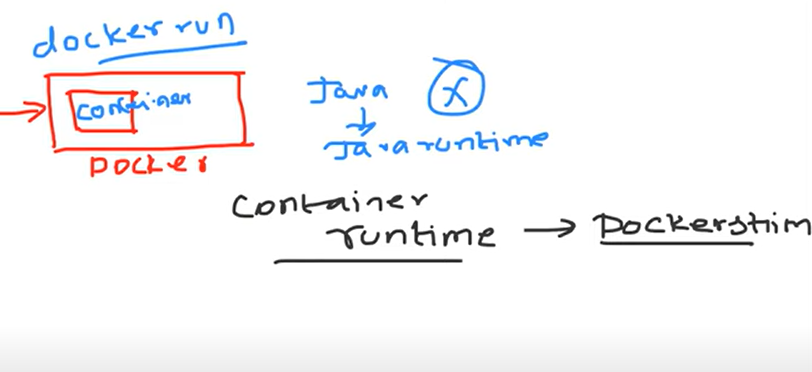 docker run
container
Docker
Java X
Java runtime
Container
runtime → Dockershim